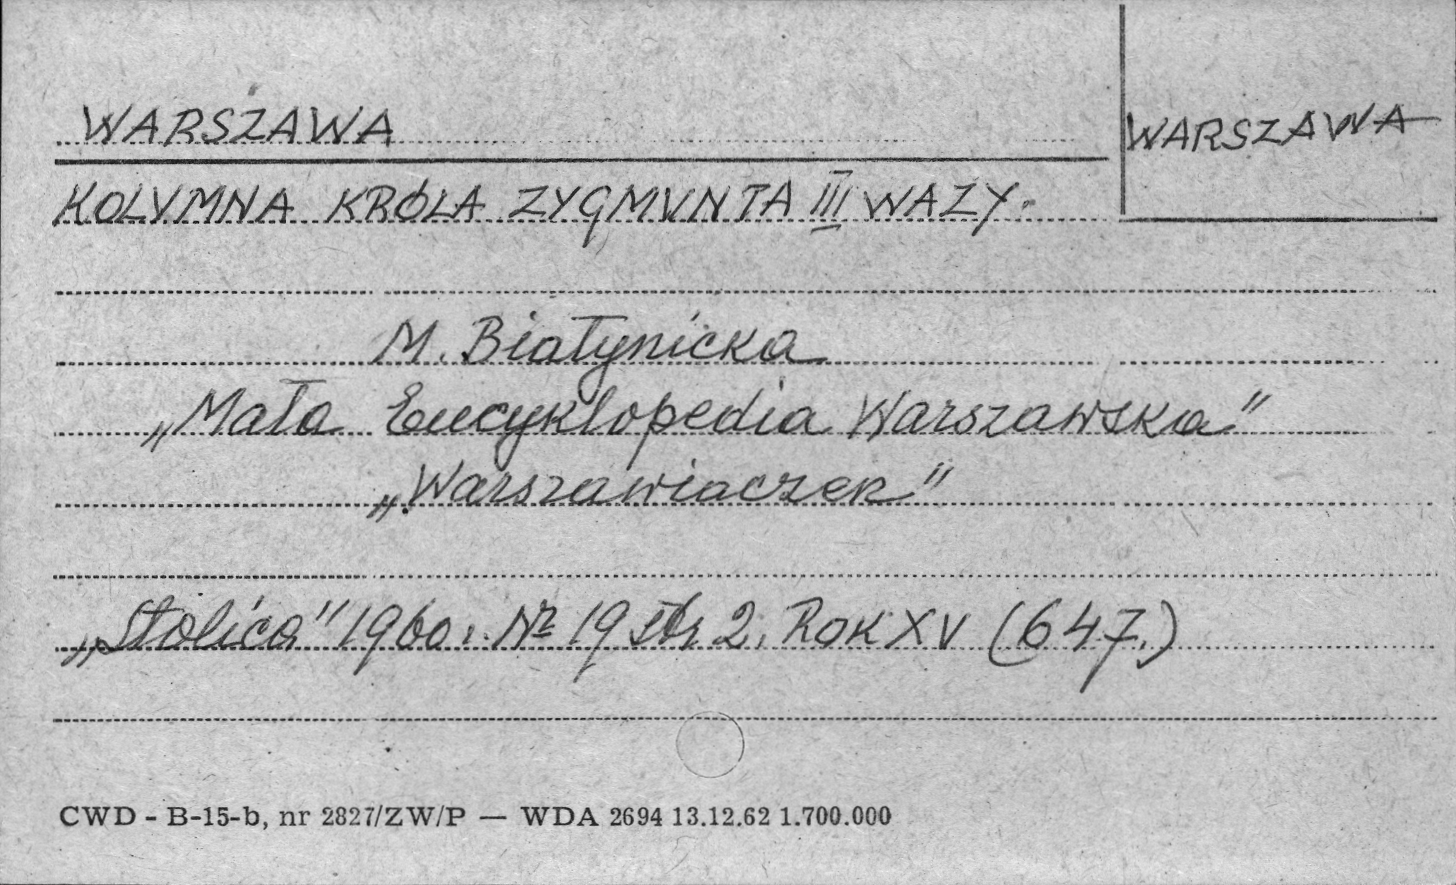 WARSZAWA
WARSZAWA
KOLUMNA KRÓLA ZYGMUNTA III WAZY.
M. Białynicka
„Mała Encyklopedia Warszawska"
„Warszawiaczek"
„Stolica" 1960 r. Nr 19 str 2. Rok XV (647.)
CWD - B-15-b, nr 2827/ZW/P — WDA 2694 13.12.62 1.700.000